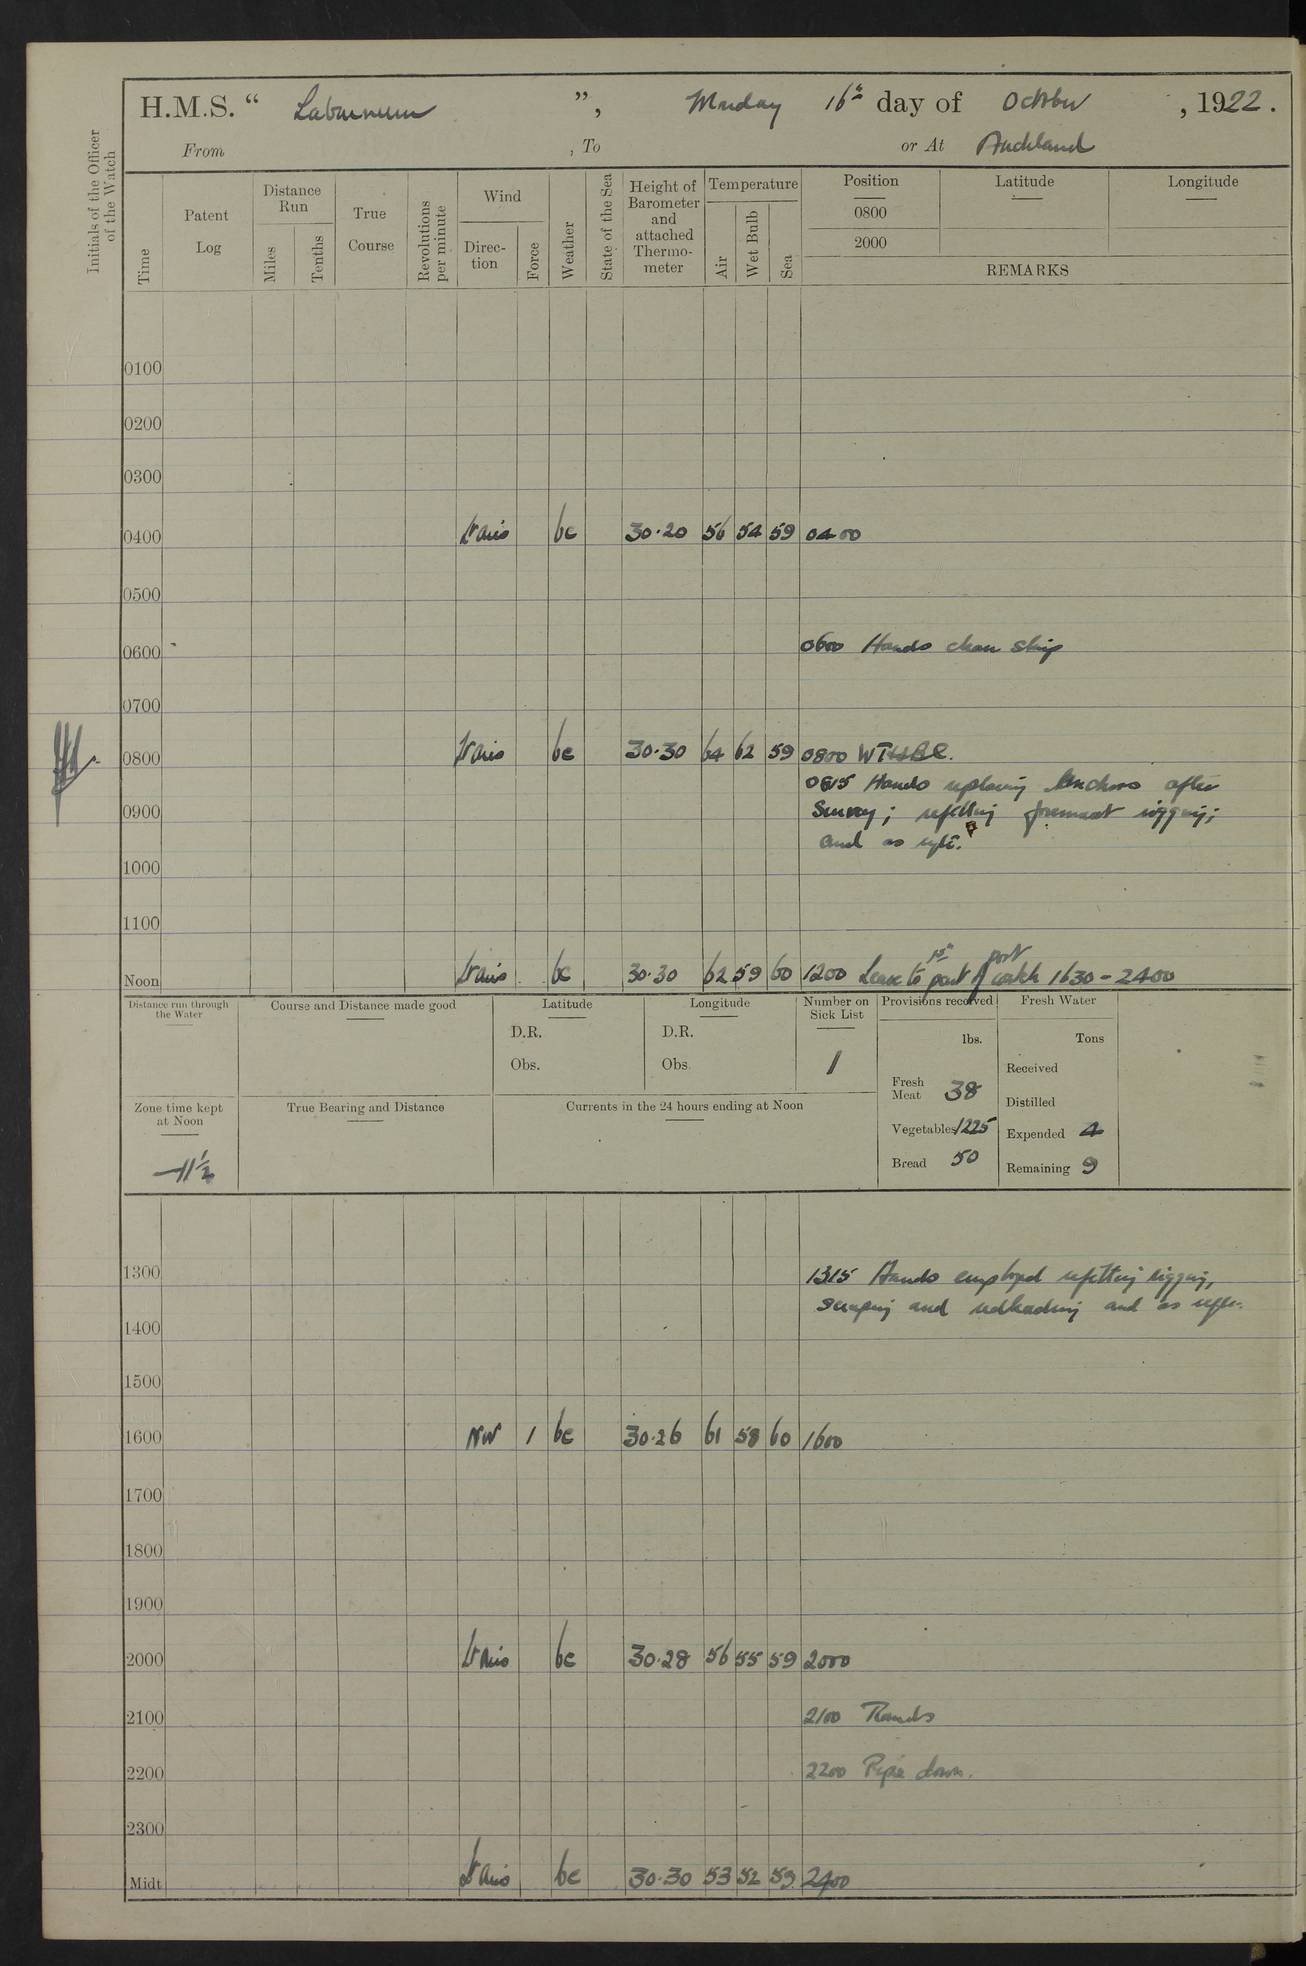 H.M.S. “ Laburnum ”, Monday 16th day of October , 1922.
From , To or At Auckland
Initials of the Officer of the Watch
Time
Patent Log
Distance Run
Miles
Tenths
True Course
Revolutions per minute
Wind
Direc-tion
Force
Weather
State of the Sea
Height of Barometer and attached Thermo-meter
Temperature
Air
Wet Bulb
Sea
Position Latitude Longitude
0800
2000
REMARKS
0100
0200
0300
0400 bc 30.20 56 54 59 0400
0500
0600 0600 Hands clean ship
0700
0800 bc 30.30 64 62 59 0800
0815 Hands replacing Anchors after
0900 Survey; refitting foremast rigging;
and as
1000
1100
Noon bc 30.30 62 59 60 1200 Leave to 1st part of port watch 1630 - 2400
Distance run through the Water
Course and Distance made good
Latitude
D.R.
Obs.
Longitude
D.R.
Obs.
Number on Sick List
1
Provisions received
lbs.
Fresh Meat 38
Vegetables 1225
Bread 50
Fresh Water
Tons
Received
Distilled
Expended 4
Remaining 9
Zone time kept at Noon
-11½
True Bearing and Distance
Currents in the 24 hours ending at Noon
1300 1315 Hands employed refitting rigging,
scraping and redleading and as
1400
1500
1600 NW 1 bc 30.26 61 58 60 1600
1700
1800
1900
2000 bc 30.28 56 55 59 2000
2100 2100 Rounds
2200 2200 Pipe down.
2300
Midt. bc 30.30 53 52 59 2400